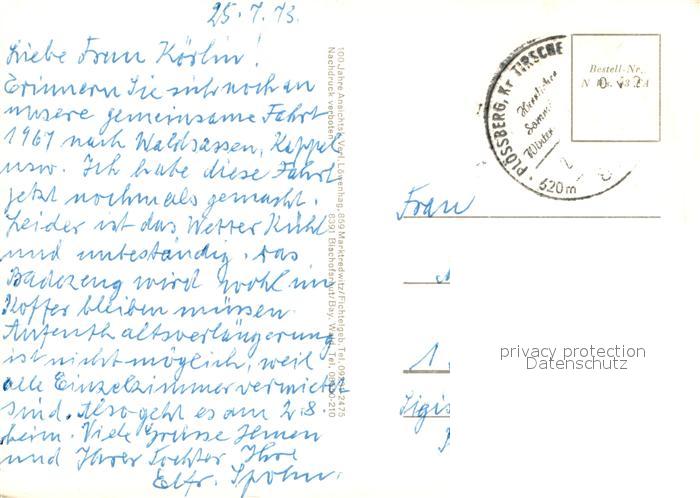 25.7.73.
Liebe Frau Körlin!
Erinnern Sie sich noch an
unsere gemeinsame Fahrt
1967 nach Waldsassen, Kappel
usw. Ich habe diese Fahrt
jetzt nochmals gemacht.
Leider ist das Wetter kühl
und unbeständig. Das
Badezeug wird wohl im
Koffer bleiben müssen.
Aufenthaltsverlängerung
ist nicht möglich, weil
alle Einzelzimmer vermietet
sind. Also geht es am 2.8.
heim. Viele Grüsse Ihnen
und Ihrer Tochter Ihre
Elfr. Spohn.
100 Jahre Ansichtsk. Verl. Löwenhag, 859 Marktredwitz/Fichtelgeb., Tel.
Nachdruck verboten 8391 Bischofsreut/Bay. Wald, Tel.
PLÖSSBERG, Kr. TIRSCHE
Herrlicher
Sommer
Winter
620 m
Bestell-Nr.
Frau
1
privacy protection
Datenschutz